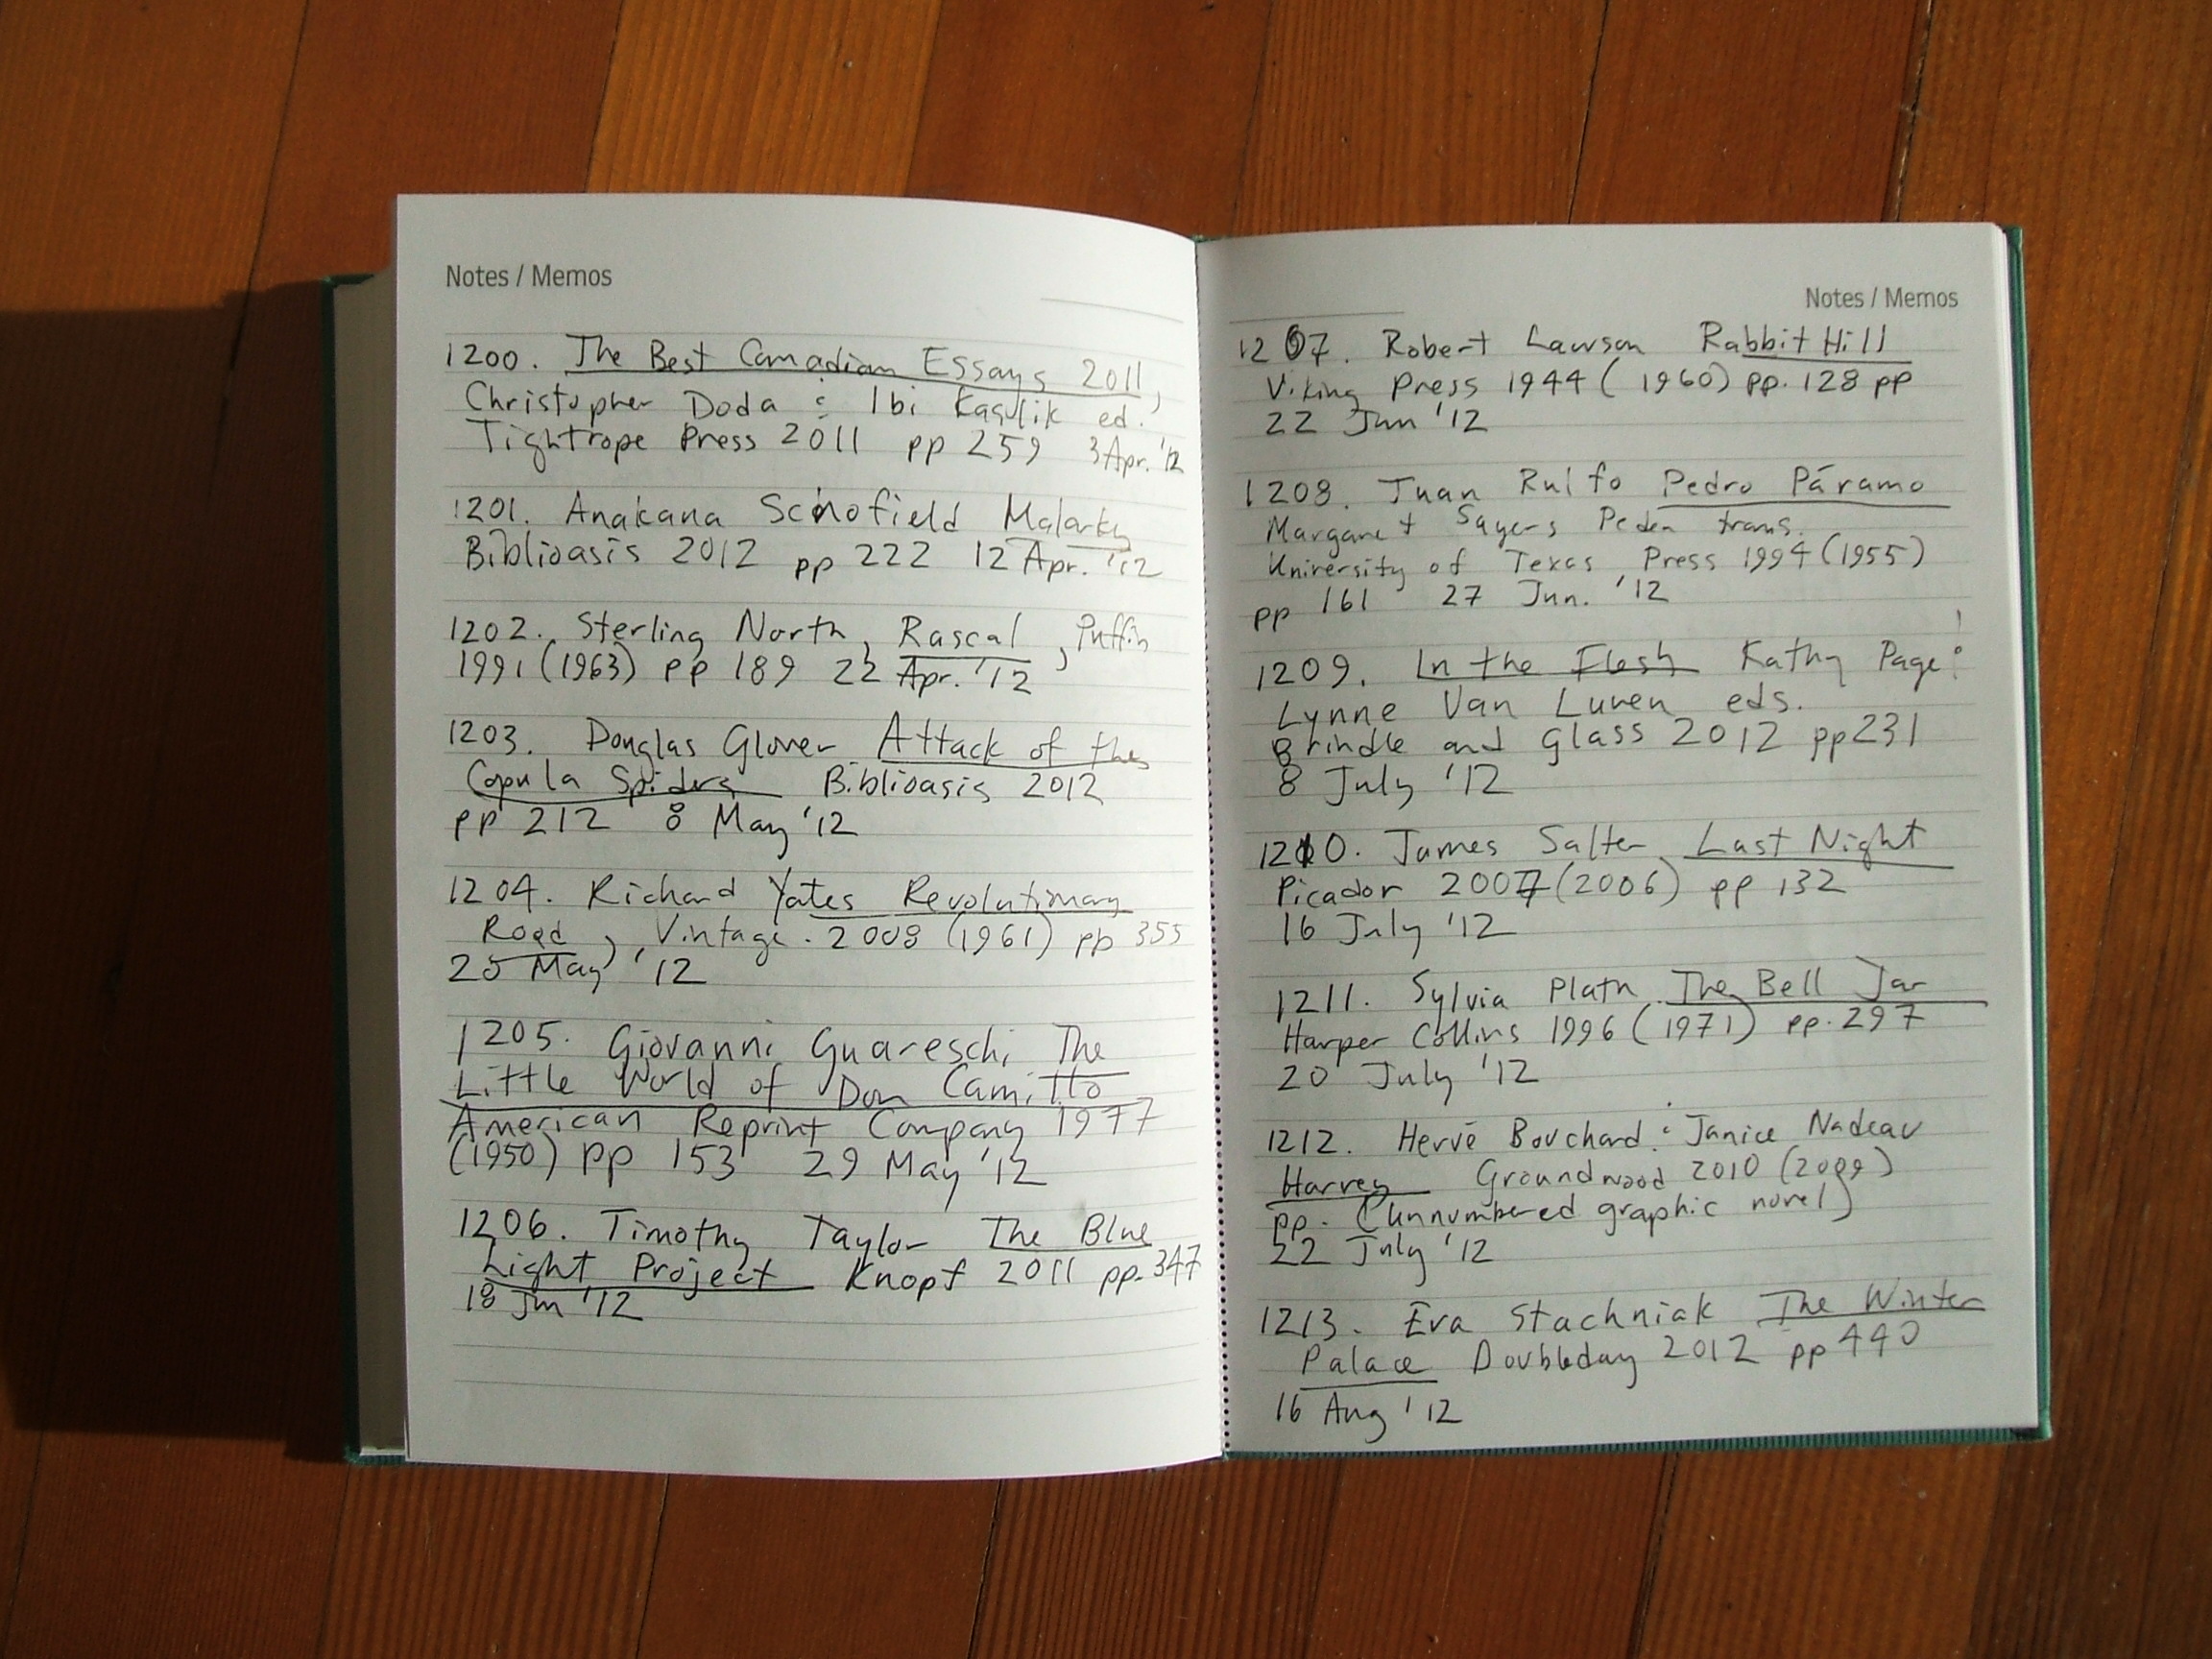 Notes / Memos
1200. The Best Canadian Essays 2011,
Christopher Doda & Ibi Kaslik ed.
Tightrope Press 2011 pp 259 3 Apr. '12
1201. Anakana Schofield Malarky
Biblioasis 2012 pp 222 12 Apr. '12
1202. Sterling North, Rascal, Puffin
1991 (1963) pp 189 22 Apr. '12
1203. Douglas Glover Attack of the
Copula Spiders Biblioasis 2012
pp 212 8 May '12
1204. Richard Yates Revolutionary
Road, Vintage. 2008 (1961) pp 355
25 May '12
1205. Giovanni Guareschi The
Little World of Don Camillo
American Reprint Company 1977
(1950) pp 153 29 May '12
1206. Timothy Taylor The Blue
Light Project Knopf 2011 pp. 347
18 Jun '12
Notes / Memos
1207. Robert Lawson Rabbit Hill
Viking Press 1944 (1960) pp. 128 pp
22 Jun '12
1208. Juan Rulfo Pedro Páramo
Margaret Sayers Peden trans.
University of Texas Press 1994 (1955)
pp 161 27 Jun. '12
1209. In the Flesh Kathy Page &
Lynne Van Luven eds.
Brindle and Glass 2012 pp 231
8 July '12
1210. James Salter Last Night
Picador 2007 (2006) pp 132
16 July '12
1211. Sylvia Plath The Bell Jar
Harper Collins 1996 (1971) pp. 297
20 July '12
1212. Hervé Bouchard & Janice Nadeau
Harvey Groundwood 2010 (2009)
pp. (unnumbered graphic novel)
22 July '12
1213. Eva Stachniak The Winter
Palace Doubleday 2012 pp 440
16 Aug '12